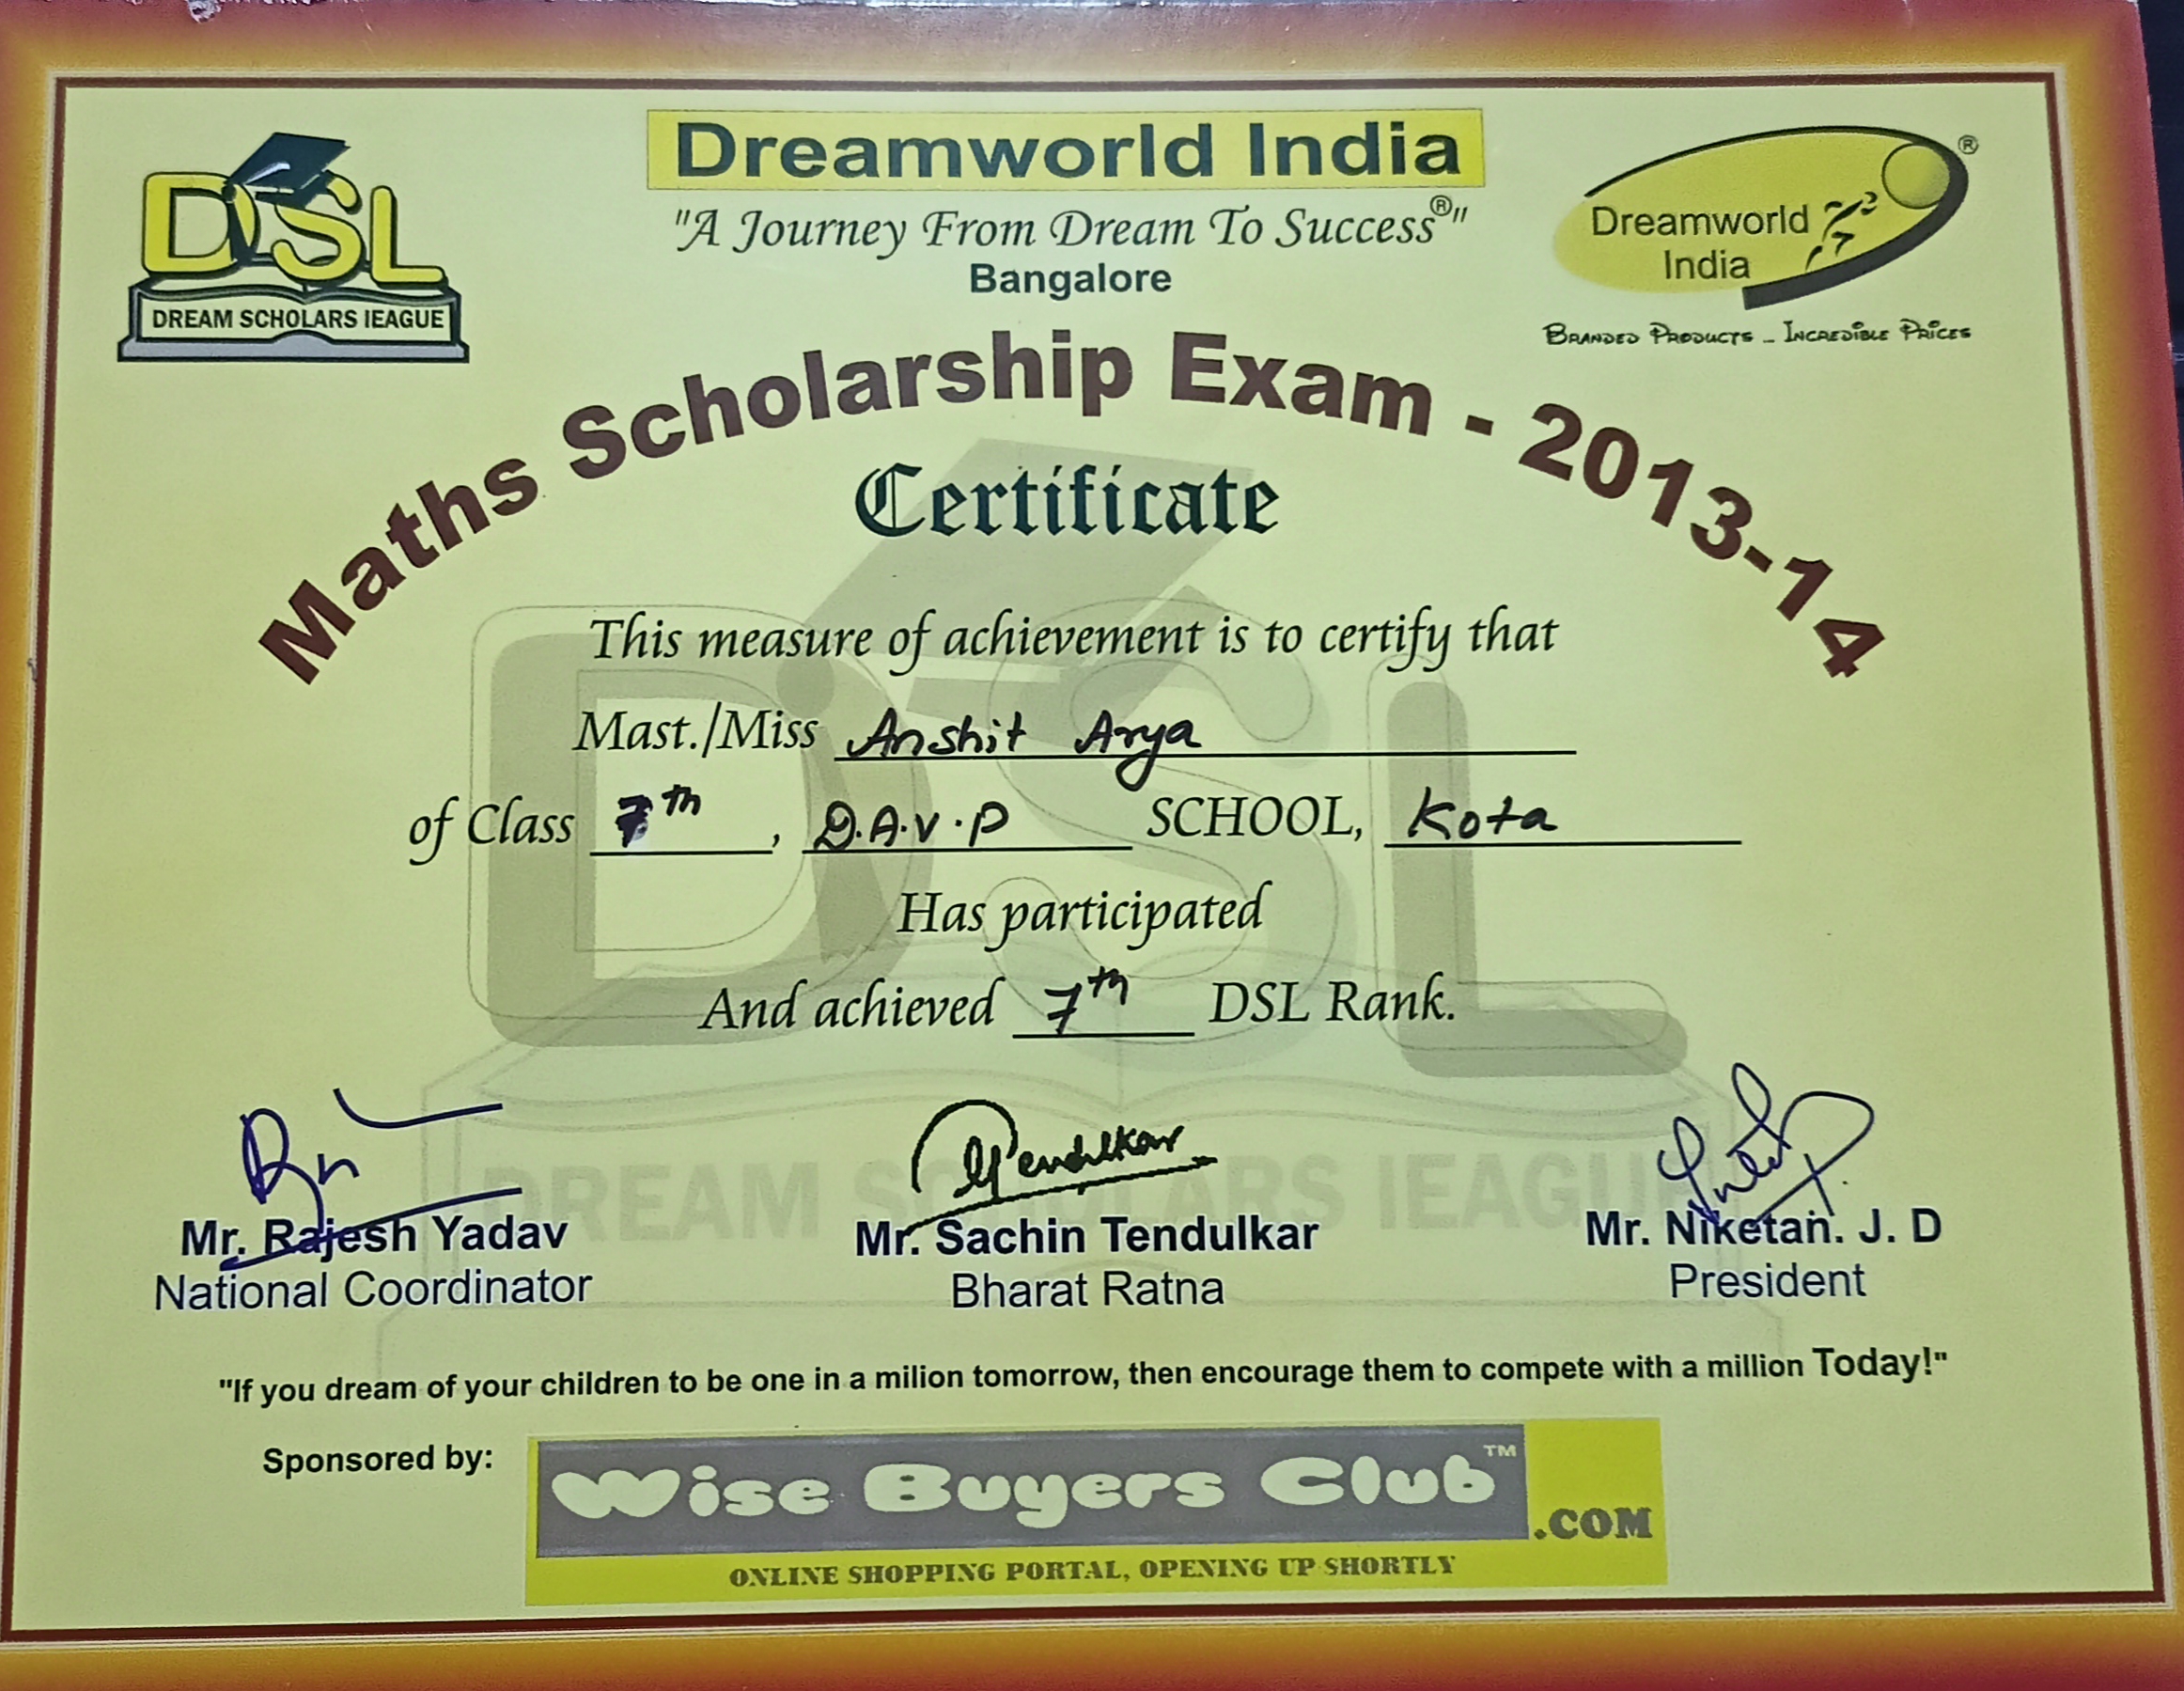 Dreamworld India
"A Journey From Dream To Success®"
Bangalore
DSL
DREAM SCHOLARS IEAGUE
Dreamworld
India
®
BRANDED PRODUCTS _ INCREDIBLE PRICES
Maths Scholarship Exam - 2013-14
Certificate
This measure of achievement is to certify that
Mast./Miss Anshit Arya
of Class 7th, D.A.V.P SCHOOL, Kota
Has participated
And achieved 7th DSL Rank.
DSL
DREAM SCHOLARS IEAGUE
Tendulkar
Mr. Rajesh Yadav Mr. Sachin Tendulkar Mr. Niketan. J. D
National Coordinator Bharat Ratna President
"If you dream of your children to be one in a milion tomorrow, then encourage them to compete with a million Today!"
Sponsored by: Wise Buyers Club™.COM
ONLINE SHOPPING PORTAL, OPENING UP SHORTLY